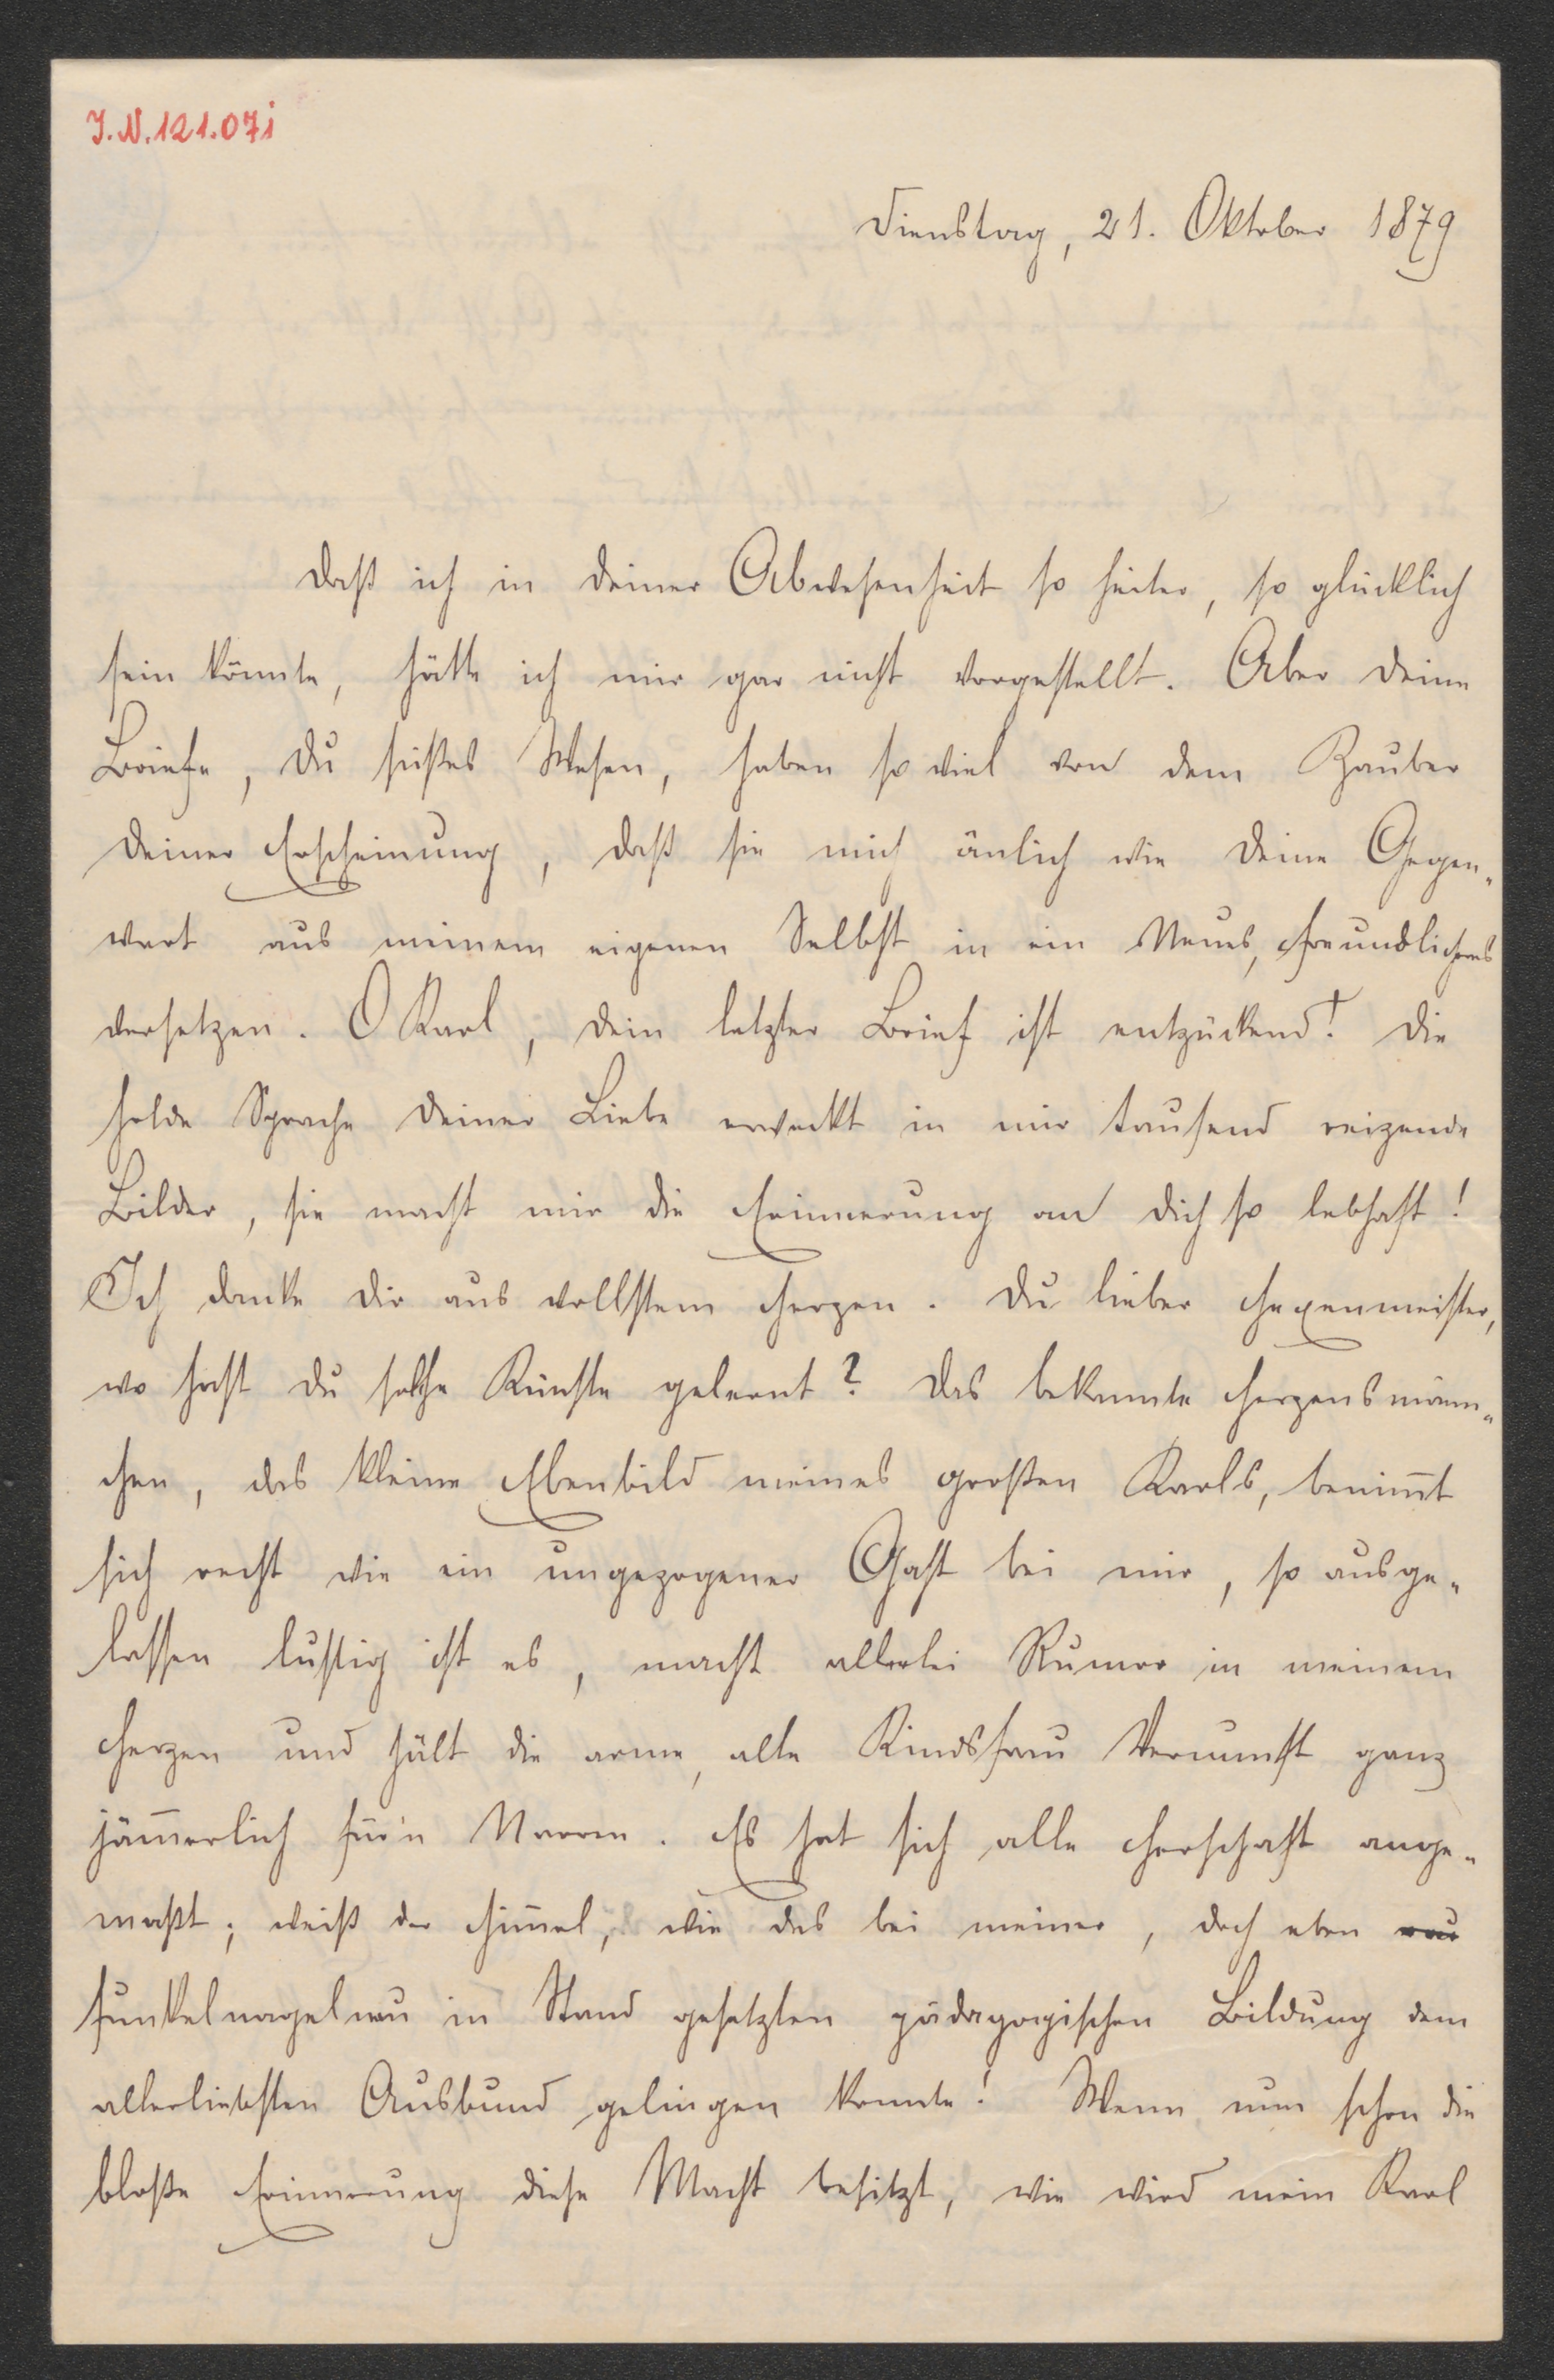 J.N.121.071
Dienstag, 21. Oktober 1879
Daß ich in Deiner Abwesenheit so heiter, so glücklich
sein könnte, hätte ich mir gar nicht vorgestellt. Aber Deine
Briefe, Du süßes Wesen, haben so viel von dem Zauber
Deiner Erscheinung, daß sie mich änlich wie Deine Gegen-
wart aus meinem eigenen Selbst in ein Neues, Freundlicheres
versetzen. O Karl, Dein letzter Brief ist entzückend! Die
holde Sprache Deiner Liebe erweckt in mir tausend reizende
Bilder, sie macht mir die Erinnerung an Dich so lebhaft!
Ich danke Dir aus vollstem Herzen. Du lieber Hexenmeister,
wo hast Du solche Künste gelernt? Das bekannte Herzensmänn-
chen, das kleine Ebenbild meines großen Karls, benimt
sich recht wie ein ungezogener Gast bei mir, so ausge-
lassen lustig ist es, macht allerlei Rumor in meinem
Herzen und hält die arme, alte Kindsfrau Vernunft ganz
jämerlich für'n Narren. Es hat sich alle Herschaft ange-
maßt; weiß der Himel, wie das bei meiner, doch eben
funkelnagelneu in Stand gesetzten pädagogischen Bildung dem
allerliebsten Ausbund gelingen konnte! Wenn nun schon die
bloße Erinnerung diese Macht besitzt, wie wird mein Karl